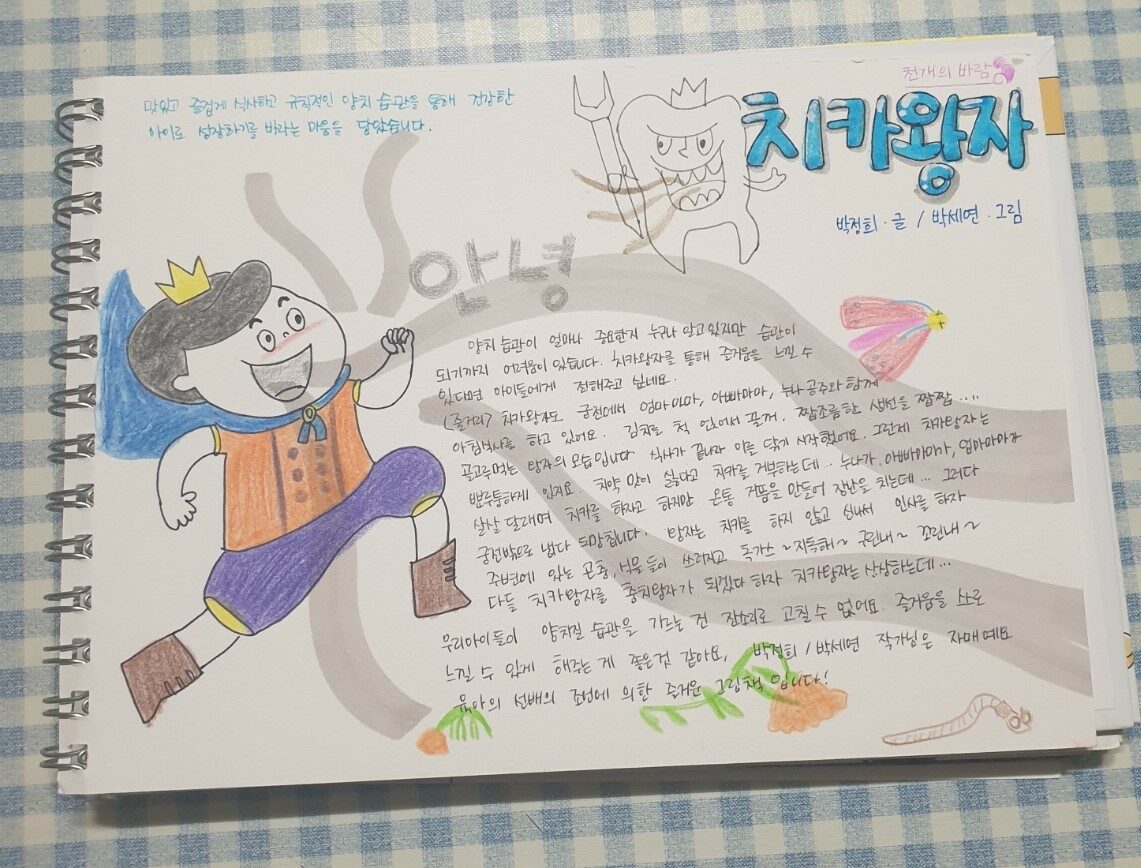 맛있고 즐겁게 식사하고 규칙적인 양치 습관을 통해 건강한
아이로 성장하기를 바라는 마음을 담았습니다.
천개의 바람
치카왕자
박정희 · 글 / 박세연 · 그림
안녕
양치 습관이 얼마나 중요한지 누구나 알고 있지만 습관이
되기까지 어려움이 있습니다. 치카왕자를 통해 즐거움을 느낄 수
있다면 아이들에게 전해주고 싶네요.
(줄거리) 치카왕자도 궁전에서 엄마마마, 아빠마마, 누나공주와 함께
아침식사를 하고 있어요. 김치를 척 얹어서 꿀꺽, 짭조름한 생선을 짭짭....
골고루먹는 왕자의 모습입니다 식사가 끝나자 이를 닦기 시작했어요. 그런데 치카왕자는
뽀루퉁하게 있지요. 치약 맛이 싫다고 치카를 거부하는데.. 누나가. 아빠마마가, 엄마마마가
살살 달래며 치카를 하자고 하지만 온통 거품을 만들어 장난을 치는데... 그러다
궁전밖으로 냅다 도망칩니다. 왕자는 치카를 하지 않고 신나서 인사를 하자
주변에 있는 곤충, 식물들이 쓰러지고 독가스~지독해~ 구린내~ 꼬린내~
다들 치카왕자를 충치왕자가 되겠다 하자 치카왕자는 상상하는데...
우리아이들이 양치질 습관을 기르는 건 잔소리로 고칠 수 없어요. 즐거움을 스스로
느낄 수 있게 해주는 게 좋은것 같아요, 박정희 / 박세연 작가님은 자매예요
육아의 선배의 조언에 의한 즐거운 그림책 입니다!